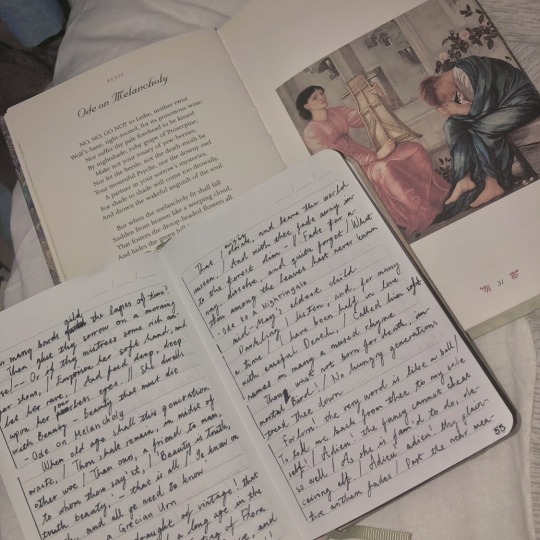 KEATS
Ode on Melancholy
NO, NO, GO NOT to Lethe, neither twist
Wolf's-bane, tight-rooted, for its poisonous wine;
Nor suffer thy pale forehead to be kissed
By nightshade, ruby grape of Proserpine;
Make not your rosary of yew-berries,
Nor let the beetle, nor the death-moth be
Your mournful Psyche, nor the downy owl
A partner in your sorrow's mysteries;
For shade to shade will come too drowsily,
And drown the wakeful anguish of the soul
But when the melancholy fit shall fall
Sudden from heaven like a weeping cloud,
That fosters the droop-headed flowers all,
And hides the green
so many bards gild the lapses of time!
Than glut thy sorrow on a morning
rose/-- Or if thy mistress some rich an-
ger shows, // Emprison her soft hand, and
let her rave, // And feed deep, deep
upon her peerless eyes. // She dwells
with Beauty - beauty that must die
- Ode on Melancholy
When old age shall this generation
waste, / Thou shalt remain, in midst of
other woe / Than ours, a friend to man,
to whom thou say'st, / "Beauty is truth,
truth beauty, - that is all / Ye know on
and all ye need to know.
a Grecian Urn
draught of vintage! that
a long age in the
ting of Flora
and
That I might drink, and leave the world
unseen, / And with thee fade away in
to the forest dim - / Fade far a-
way, dissolve, and quite forget / What
thou among the leaves hast never known
- Ode to a Nightingale
mid-May's eldest child
Darkling I listen; and, for many
a time / I have been half in love
with easeful Death, / Called him soft
names in many a mused rhyme
Thou was not born for death, im-
mortal Bird! / No hungry generations
tread thee down
Forlorn! the very word is like a bell /
To toll me back from thee to my sole
self! / Adieu! the fancy cannot cheat
so well / As she is fam'd to do, de-
ceiving elf. / Adieu! adieu! thy plain-
tive anthem fades / Past the near mea-